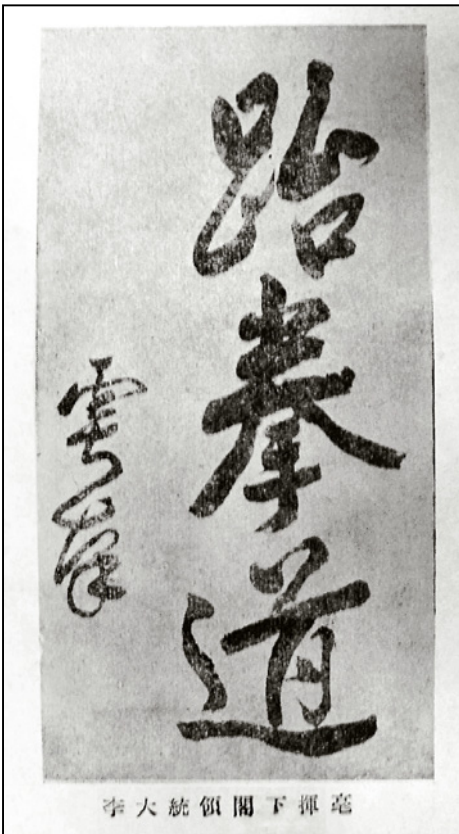 跆拳道
雩南
李大統領閣下揮毫